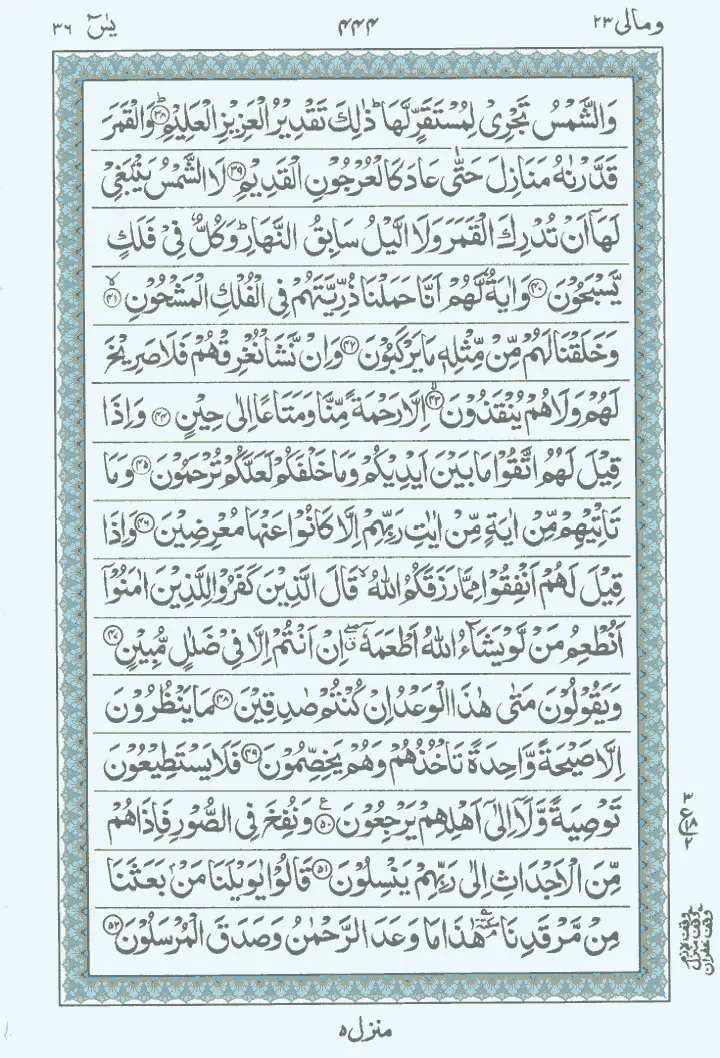 ومالی ۲۳ ۴۴۴ یٰسٓ ۳۶
وَالشَّمْسُ تَجْرِیْ لِمُسْتَقَرٍّ لَّهَا ؕ ذٰلِكَ تَقْدِیْرُ الْعَزِیْزِ الْعَلِیْمِ ؕ﴿۳۸﴾ وَالْقَمَرَ
قَدَّرْنٰهُ مَنَازِلَ حَتّٰی عَادَ كَالْعُرْجُوْنِ الْقَدِیْمِ ﴿۳۹﴾ لَا الشَّمْسُ یَنْۢبَغِیْ
لَهَاۤ اَنْ تُدْرِكَ الْقَمَرَ وَلَا الَّیْلُ سَابِقُ النَّهَارِ ؕ وَكُلٌّ فِیْ فَلَكٍ
یَّسْبَحُوْنَ ﴿۴۰﴾ وَاٰیَةٌ لَّهُمْ اَنَّا حَمَلْنَا ذُرِّیَّتَهُمْ فِی الْفُلْكِ الْمَشْحُوْنِ ۙ﴿۴۱﴾
وَخَلَقْنَا لَهُمْ مِّنْ مِّثْلِهٖ مَا یَرْكَبُوْنَ ﴿۴۲﴾ وَاِنْ نَّشَاْ نُغْرِقْهُمْ فَلَا صَرِیْخَ
لَهُمْ وَلَا هُمْ یُنْقَذُوْنَ ۙ﴿۴۳﴾ اِلَّا رَحْمَةً مِّنَّا وَمَتَاعًا اِلٰی حِیْنٍ ﴿۴۴﴾ وَاِذَا
قِیْلَ لَهُمُ اتَّقُوْا مَا بَیْنَ اَیْدِیْكُمْ وَمَا خَلْفَكُمْ لَعَلَّكُمْ تُرْحَمُوْنَ ﴿۴۵﴾ وَمَا
تَاْتِیْهِمْ مِّنْ اٰیَةٍ مِّنْ اٰیٰتِ رَبِّهِمْ اِلَّا كَانُوْا عَنْهَا مُعْرِضِیْنَ ﴿۴۶﴾ وَاِذَا
قِیْلَ لَهُمْ اَنْفِقُوْا مِمَّا رَزَقَكُمُ اللّٰهُ ۙ قَالَ الَّذِیْنَ كَفَرُوْا لِلَّذِیْنَ اٰمَنُوْۤا
اَنُطْعِمُ مَنْ لَّوْ یَشَآءُ اللّٰهُ اَطْعَمَهٗۤ ۖق اِنْ اَنْتُمْ اِلَّا فِیْ ضَلٰلٍ مُّبِیْنٍ ﴿۴۷﴾
وَیَقُوْلُوْنَ مَتٰی هٰذَا الْوَعْدُ اِنْ كُنْتُمْ صٰدِقِیْنَ ﴿۴۸﴾ مَا یَنْظُرُوْنَ
اِلَّا صَیْحَةً وَّاحِدَةً تَاْخُذُهُمْ وَهُمْ یَخِصِّمُوْنَ ﴿۴۹﴾ فَلَا یَسْتَطِیْعُوْنَ
تَوْصِیَةً وَّلَاۤ اِلٰۤی اَهْلِهِمْ یَرْجِعُوْنَ ﴿۵۰﴾ وَنُفِخَ فِی الصُّوْرِ فَاِذَا هُمْ
مِّنَ الْاَجْدَاثِ اِلٰی رَبِّهِمْ یَنْسِلُوْنَ ﴿۵۱﴾ قَالُوْا یٰوَیْلَنَا مَنْۢ بَعَثَنَا
مِنْ مَّرْقَدِنَا ٚ هٰذَا مَا وَعَدَ الرَّحْمٰنُ وَصَدَقَ الْمُرْسَلُوْنَ ﴿۵۲﴾
۳
ع
۲
وقف منزل
وقف غفران
منزل ۵